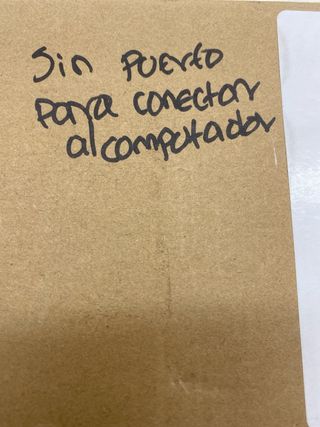 Sin Puerto
para conectar
al computador